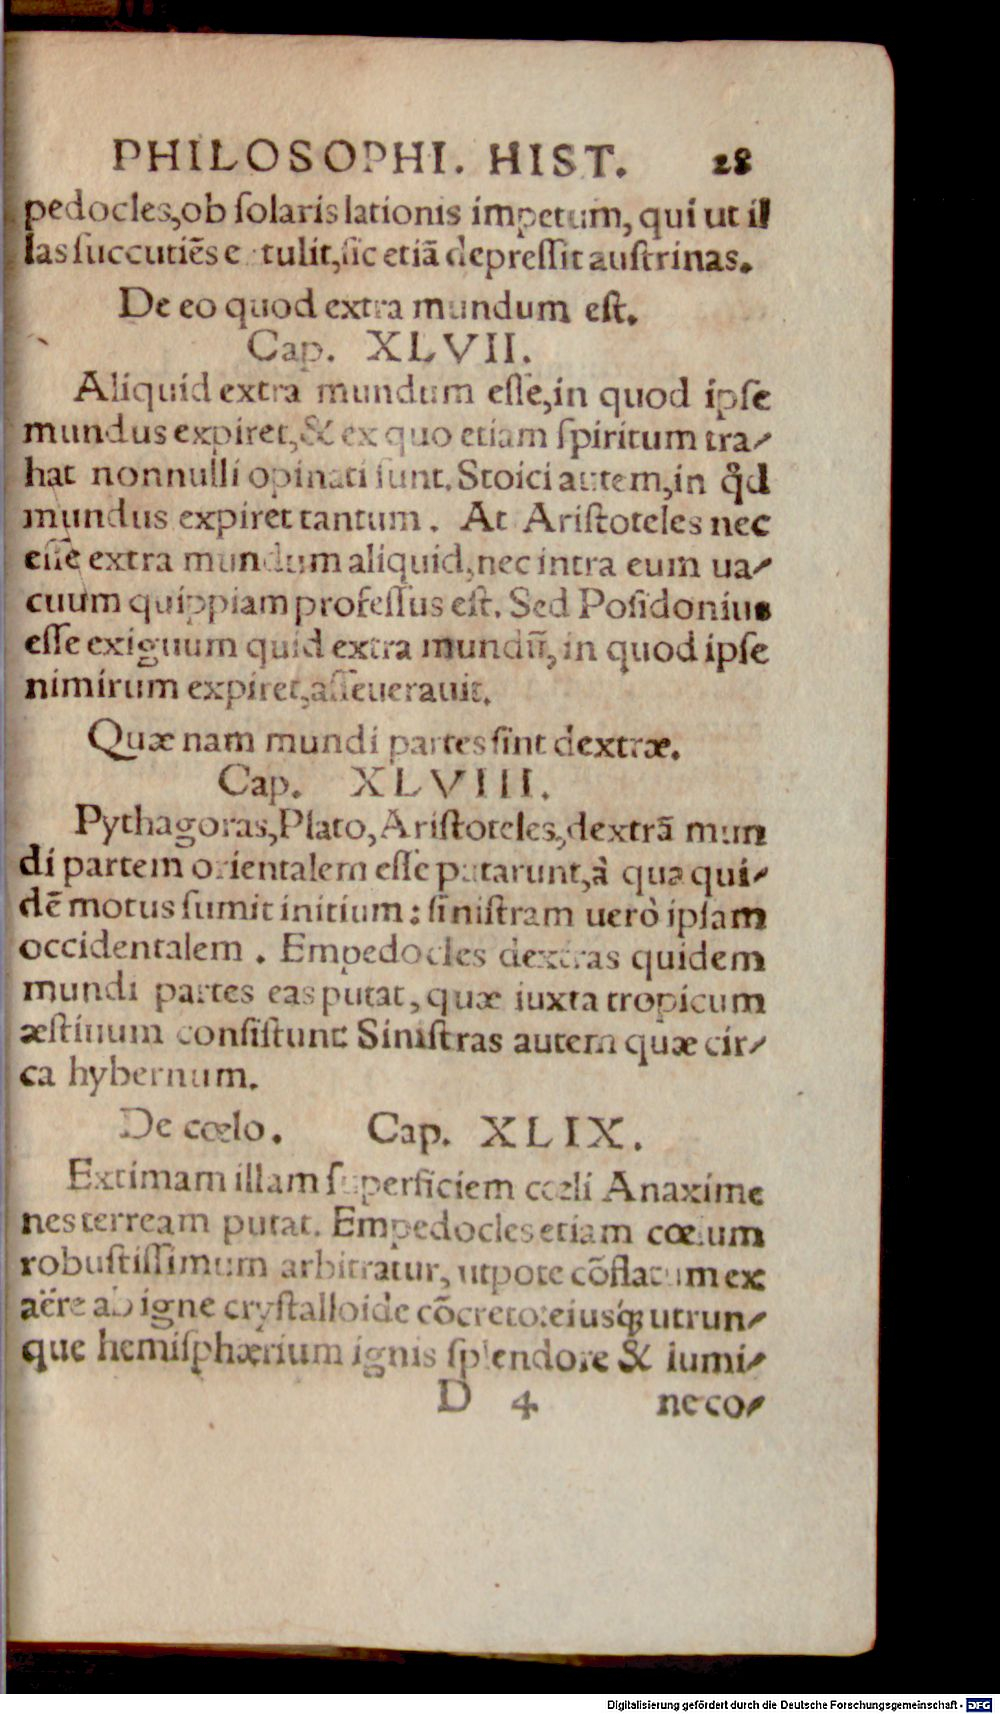 PHILOSOPHI. HIST. 28
pedocles, ob ſolaris lationis impetum, qui ut il
las ſuccutiẽs e tulit, ſic etiã depreſſit auſtrinas.
De eo quod extra mundum eſt.
Cap. XLVII.
Aliquid extra mundum eſſe, in quod ipſe
mundus expiret, & ex quo etiam ſpiritum tra-
hat nonnulli opinati ſunt. Stoici autem, in qd̃
mundus expiret tantum. At Ariſtoteles nec
eſſe extra mundum aliquid, nec intra eum ua-
cuum quippiam profeſſus eſt. Sed Poſidonius
eſſe exiguum quid extra mundũ, in quod ipſe
nimirum expiret, aſſeuerauit.
Quæ nam mundi partes ſint dextræ.
Cap. XLVIII.
Pythagoras, Plato, Ariſtoteles, dextrã mun
di partem orientalem eſſe putarunt, à qua qui-
dẽ motus ſumit initium: ſiniſtram uerò ipſam
occidentalem. Empedocles dextras quidem
mundi partes eas putat, quæ iuxta tropicum
æſtiuum conſiſtunt: Siniſtras autem quæ cir-
ca hybernum.
De cœlo. Cap. XLIX.
Extimam illam ſuperficiem cœli Anaxime
nes terream putat. Empedocles etiam cœlum
robuſtiſſimum arbitratur, utpote cõflatum ex
aëre ab igne cryſtalloide cõcreto: eiusq́; utrun-
que hemiſphærium ignis ſplendore & lumi-
D 4 ne co-
Digitalisierung gefördert durch die Deutsche Forschungsgemeinschaft - DFG